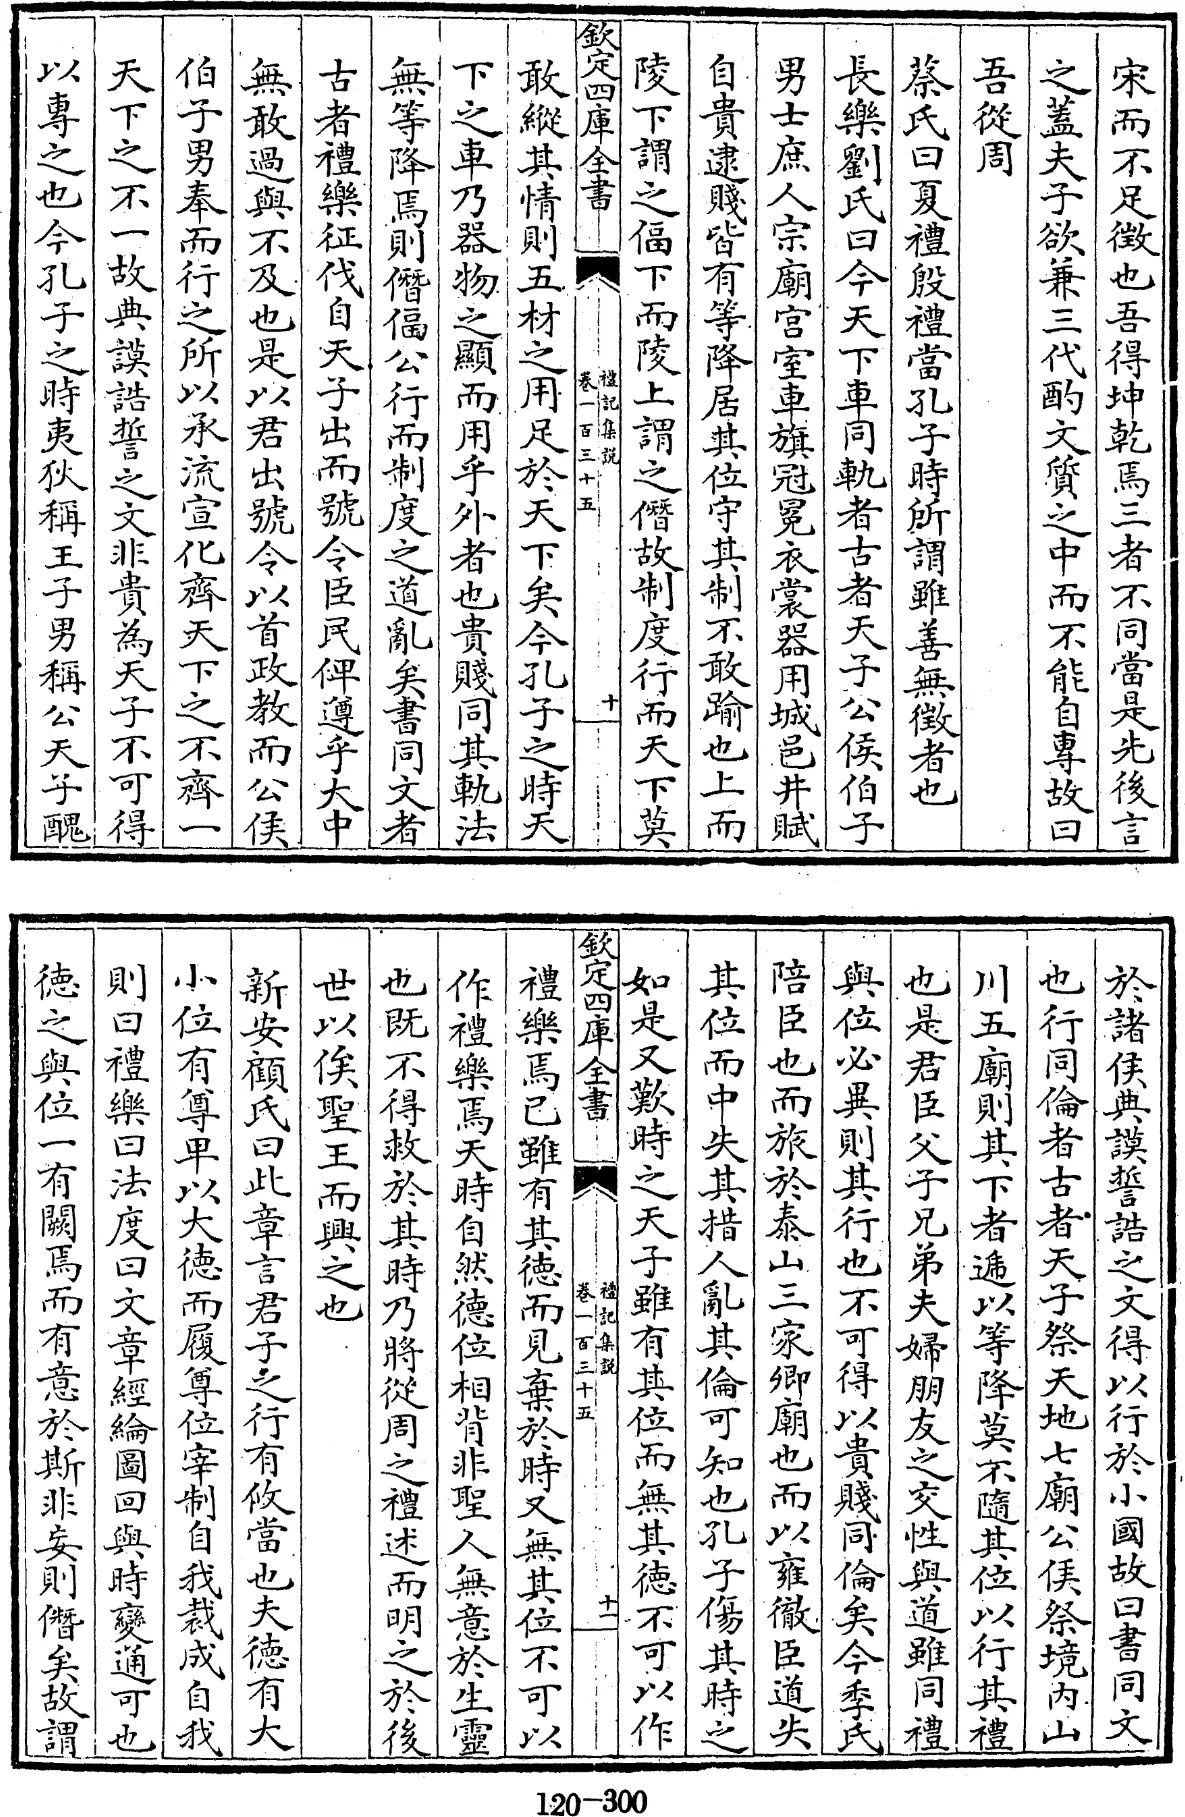 宋而不足徵也吾得坤乾焉三者不同當是先後言
之蓋夫子欲兼三代酌文質之中而不能自專故曰
吾從周
蔡氏曰夏禮殷禮當孔子時所謂雖善無徵者也
長樂劉氏曰今天下車同軌者古者天子公侯伯子
男士庶人宗廟宮室車旗冠冕衣裳器用城邑井賦
自貴逮賤皆有等降居其位守其制不敢踰也上而
陵下謂之偪下而陵上謂之僭故制度行而天下莫
欽定四庫全書
禮記集說
卷一百三十五
十
敢縱其情則五材之用足於天下矣今孔子之時天
下之車乃器物之顯而用乎外者也貴賤同其軌法
無等降焉則僭偪公行而制度之道亂矣書同文者
古者禮樂征伐自天子出而號令臣民俾遵乎大中
無敢過與不及也是以君出號令以首政教而公侯
伯子男奉而行之所以承流宣化齊天下之不齊一
天下之不一故典謨誥誓之文非貴為天子不可得
以專之也今孔子之時夷狄稱王子男稱公天子醜
於諸侯典謨誓誥之文得以行於小國故曰書同文
也行同倫者古者天子祭天地七廟公侯祭境内山
川五廟則其下者遞以等降莫不隨其位以行其禮
也是君臣父子兄弟夫婦朋友之交性與道雖同禮
與位必異則其行也不可得以貴賤同倫矣今季氏
陪臣也而旅於泰山三家卿廟也而以雍徹臣道失
其位而中失其措人亂其倫可知也孔子傷其時之
如是又歎時之天子雖有其位而無其德不可以作
欽定四庫全書
禮記集說
卷一百三十五
十一
禮樂焉已雖有其德而見棄於時又無其位不可以
作禮樂焉天時自然德位相背非聖人無意於生靈
也既不得救於其時乃將從周之禮述而明之於後
世以俟聖王而興之也
新安顧氏曰此章言君子之行有攸當也夫德有大
小位有尊卑以大德而履尊位宰制自我裁成自我
則曰禮樂曰法度曰文章經綸圖回與時變通可也
德之與位一有闕焉而有意於斯非妄則僭矣故謂
120-300